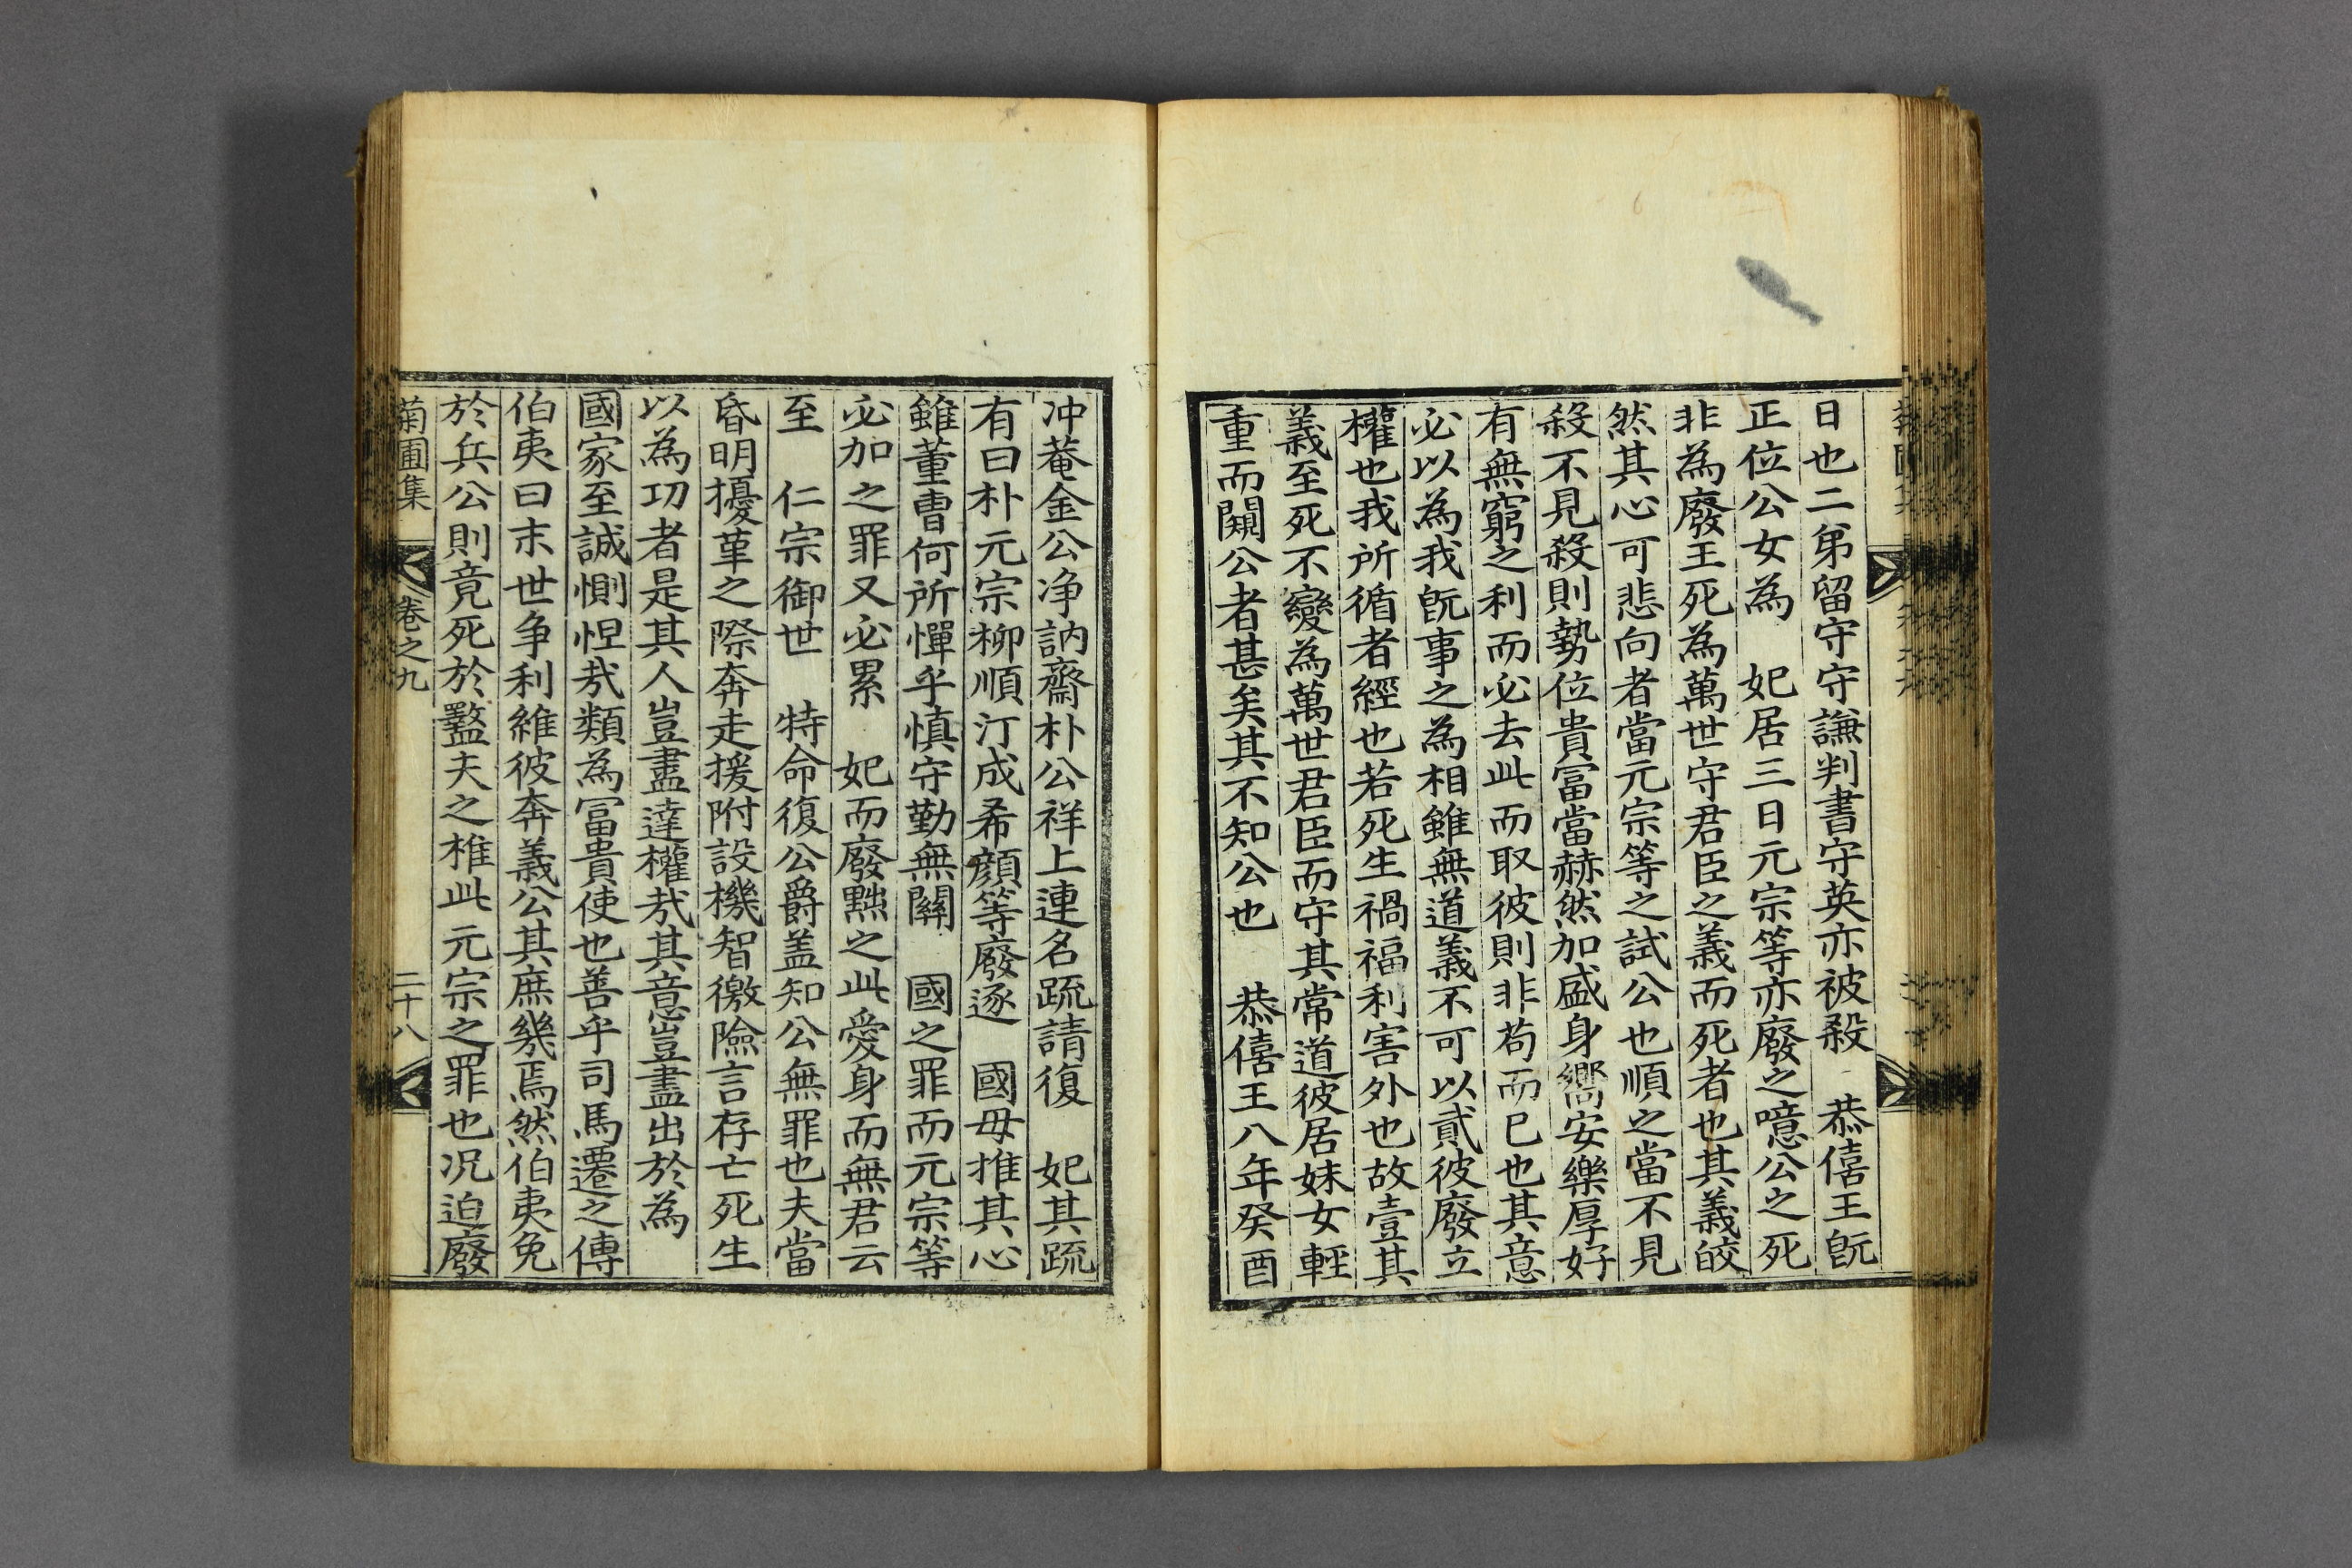 日也二弟留守守謙判書守英亦被殺　恭僖王旣
正位公女為　妃居三日元宗等亦廢之噫公之死
非為廢王死為萬世守君臣之義而死者也其義皎
然其心可悲向者當元宗等之試公也順之當不見
殺不見殺則勢位貴富當赫然加盛身嚮安樂厚好
有無窮之利而必去此而取彼則非苟而已也其意
必以為我旣事之為相雖無道義不可以貳彼廢立
權也我所循者經也若死生禍福利害外也故壹其
義至死不變為萬世君臣而守其常道彼居妹女輕
重而闚公者甚矣其不知公也　恭僖王八年癸酉
冲菴金公净訥齋朴公祥上連名疏請復　妃其疏
有曰朴元宗柳順汀成希顔等廢逐　國母推其心
雖董曹何所憚乎慎守勤無關　國之罪而元宗等
必加之罪又必累　妃而廢黜之此愛身而無君云
至　仁宗御世　特命復公爵盖知公無罪也夫當
昏明擾革之際奔走援附設機智徼險言存亡死生
以為功者是其人豈盡達權㦲其意豈盡出於為
國家至誠惻怛㦲類為冨貴使也善乎司馬遷之傳
伯夷曰末世争利維彼奔義公其庶幾焉然伯夷免
於兵公則竟死於盭夫之椎此元宗之罪也况迫廢
菊圃集　卷之九　二十八